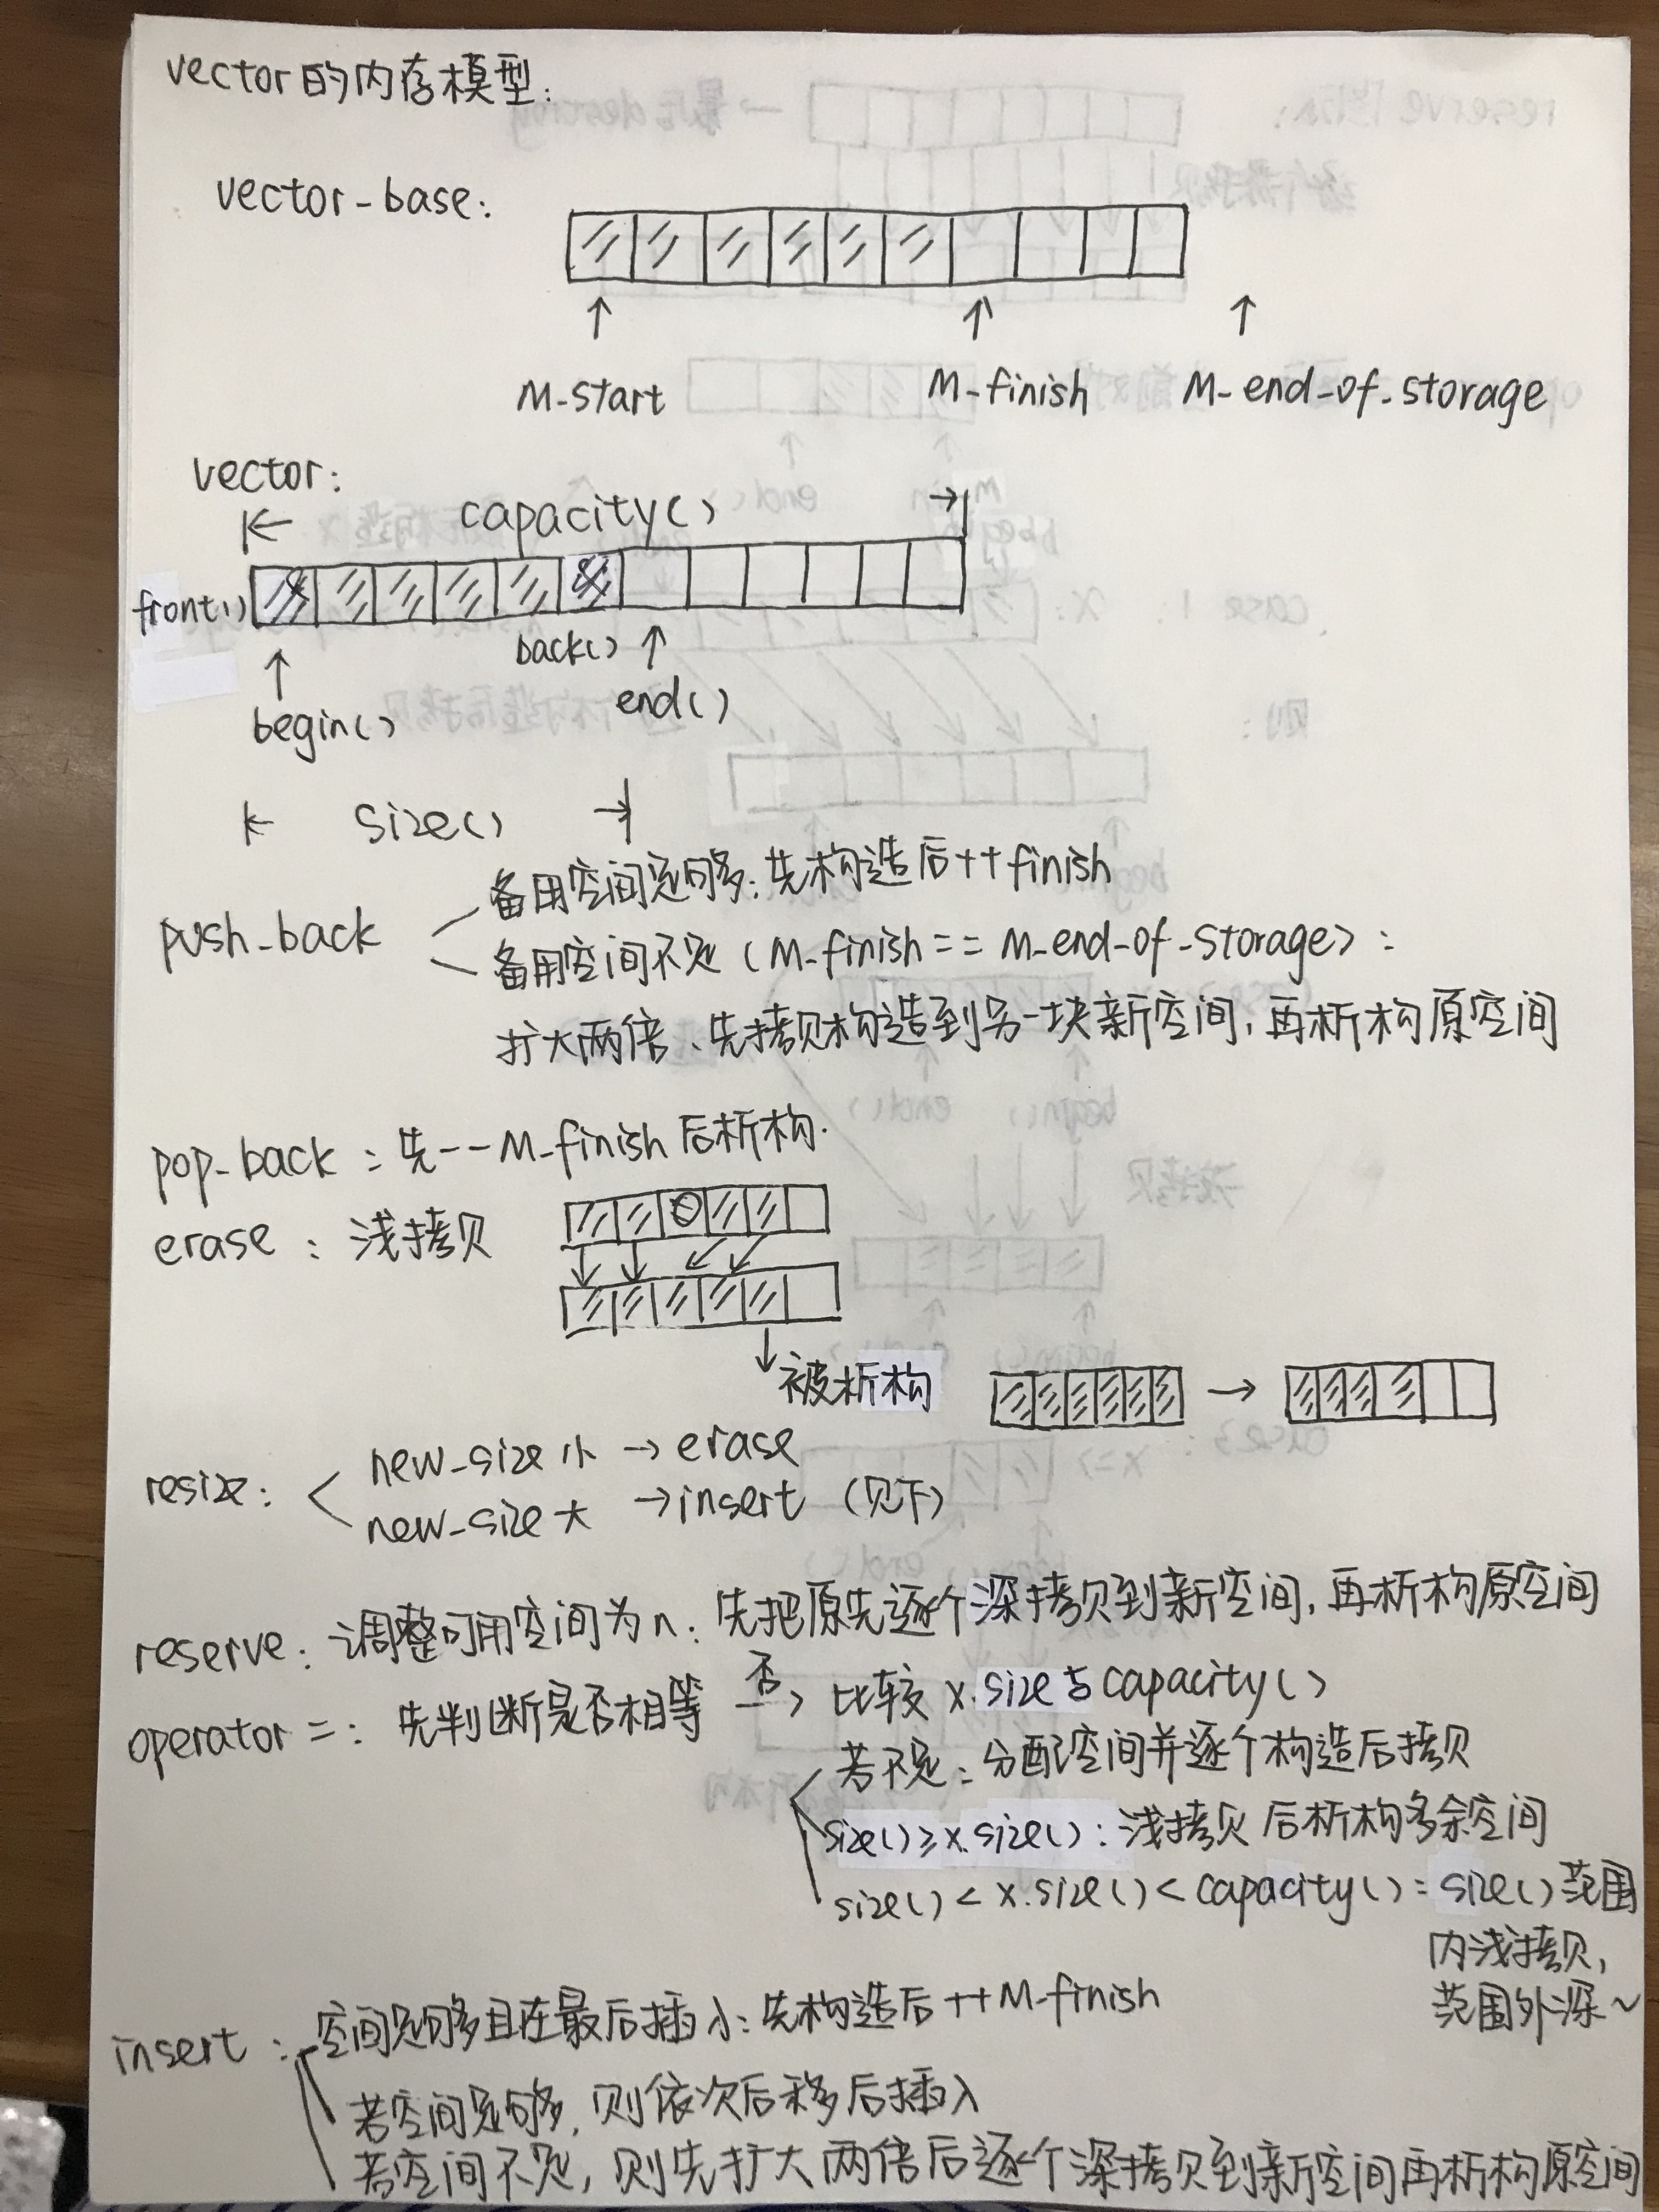 vector的内存模型:
vector-base:
M-start M-finish M-end-of-storage
vector:
capacity()
front()
back()
begin() end()
size()
push-back 备用空间足够多: 先构造后++finish
备用空间不足 (M-finish == M-end-of-storage):
扩大两倍、先拷贝构造到另一块新空间, 再析构原空间
pop-back : 先--M-finish 后析构.
erase : 浅拷贝
被析构
resize: new-size 小 → erase
new-size 大 → insert (见下)
reserve: 调整可用空间为n: 先把原先逐个深拷贝到新空间, 再析构原空间
operator =: 先判断是否相等 否→ 比较 x.size与capacity()
若不足: 分配空间并逐个构造后拷贝
size()≥x.size(): 浅拷贝 后析构多余空间
size() < x.size() < capacity(): size()范围
内浅拷贝,
范围外深~
insert : 空间足够多且在最后插入: 先构造后 ++M-finish
若空间足够多, 则依次后移后插入
若空间不足, 则先扩大两倍后逐个深拷贝到新空间再析构原空间